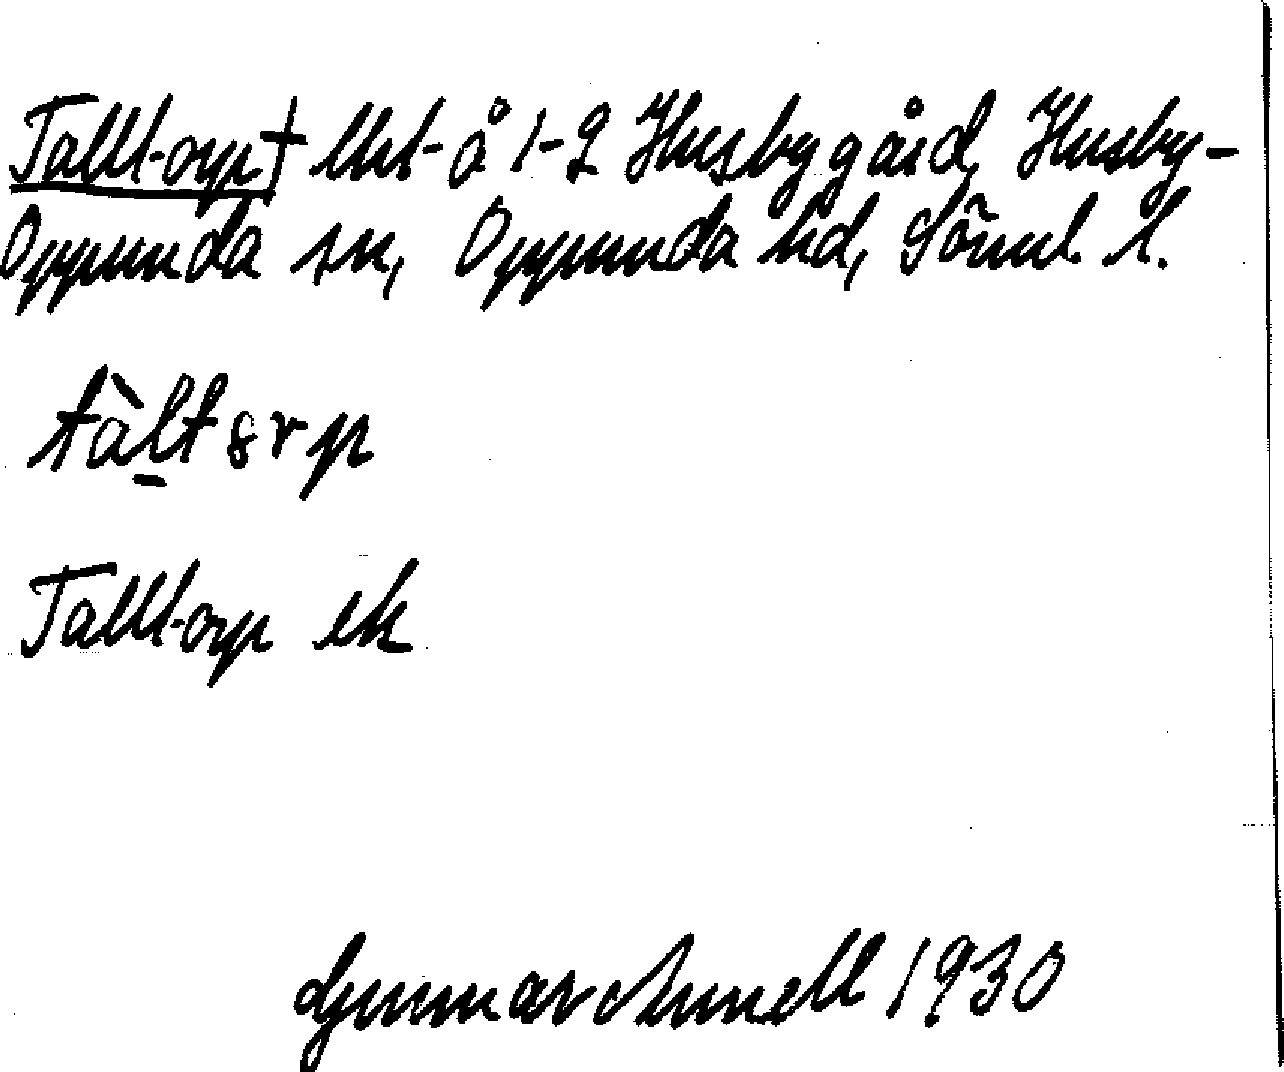 Talltorp † lht å 1-2 Husbygård, Husby-
Oppunda sn, Oppunda hd, Söml. l.
tàltɞrp
Talltorp ek
Gunnar Annell 1930